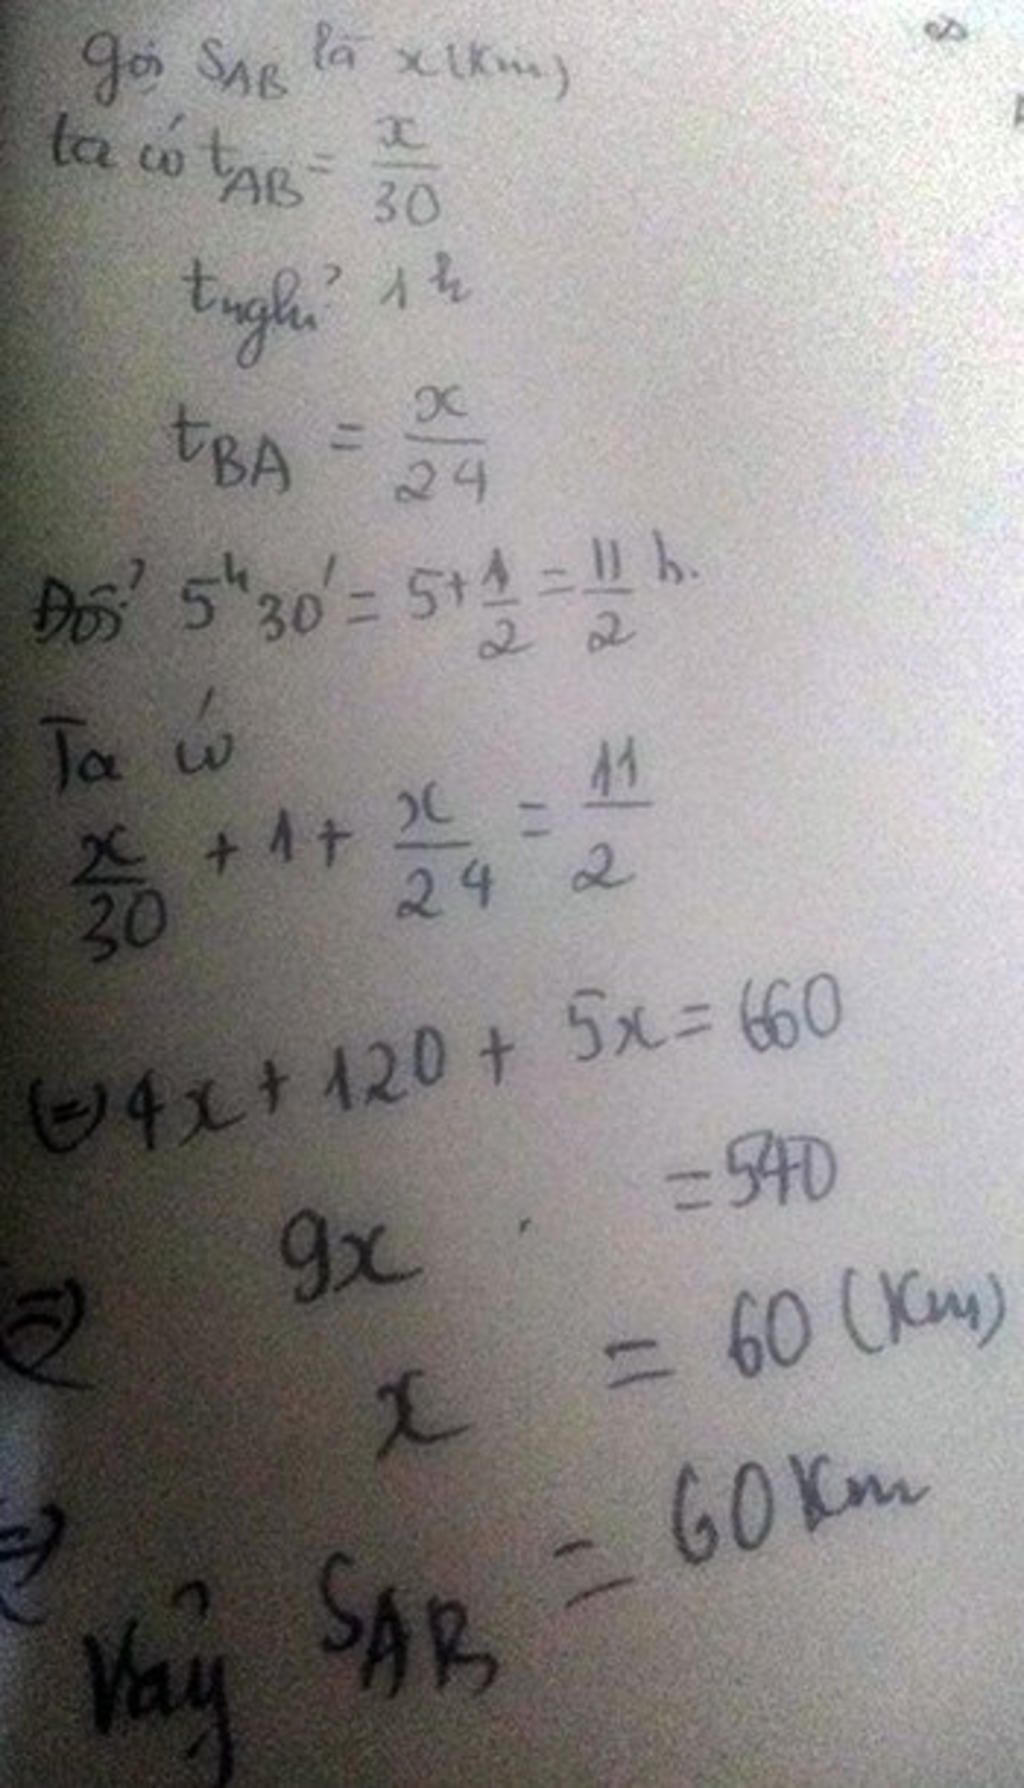 gọi SAB là x(Km)
ta có tAB = x/30
tnghỉ 1h
tBA = x/24
Đổi 5h30' = 5+1/2 = 11/2 h.
Ta có
x/30 + 1 + x/24 = 11/2
(=) 4x + 120 + 5x = 660
(=) 9x = 540
(=) x = 60 (Km)
Vậy SAB = 60 Km